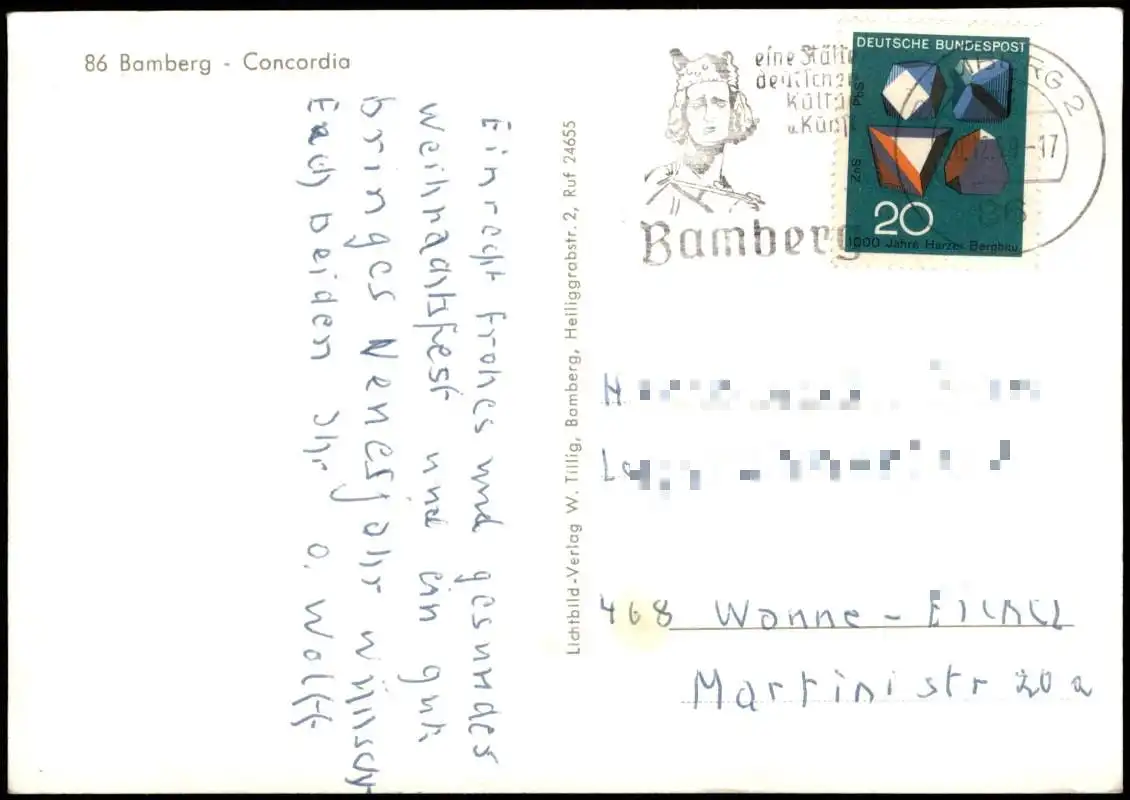 86 Bamberg - Concordia
eine Stätte
deutscher
Kultur
u. Kunst
Bamberg
DEUTSCHE BUNDESPOST
PbS
ZnS
20
1000 Jahre Harzer Bergbau
BERG 2
-17
86
Ein recht frohes und gesundes
Weihnachtsfest und ein gut
bringes Neuesjahr wünscht
Euch beiden Ihr O. Wolff
Lichtbild-Verlag W. Tillig, Bamberg, Heiliggrabstr. 2, Ruf 24655
H
Le
468 Wanne - Eickel
Martinistr 20a